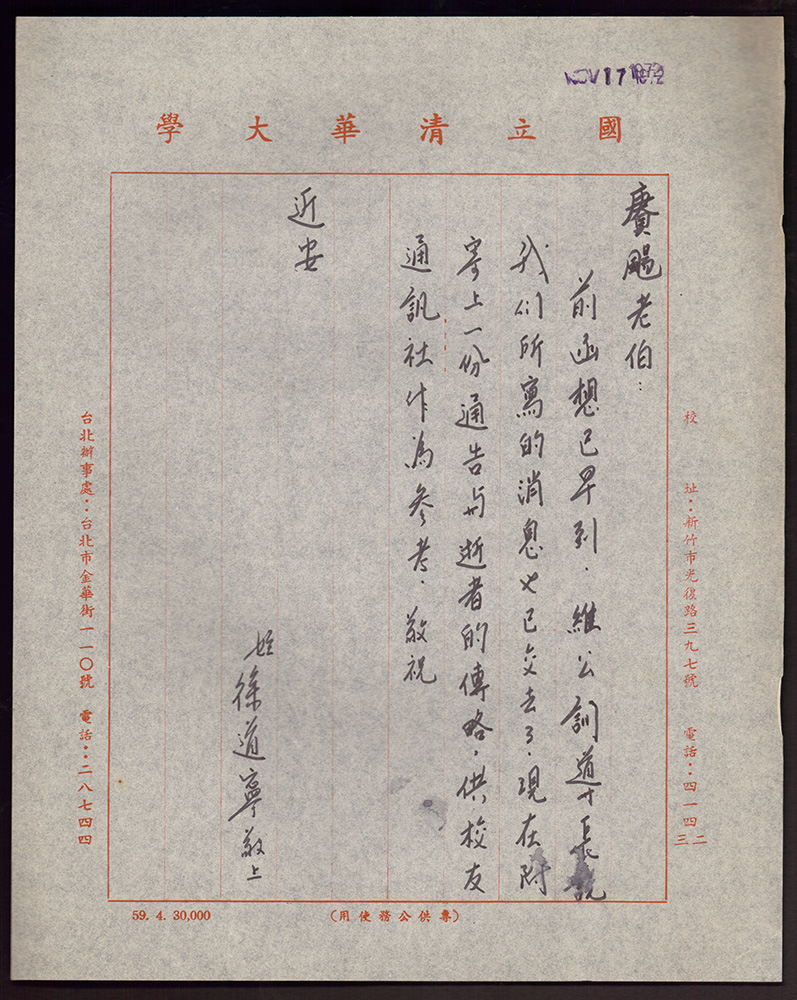 NOV 17 1972
國立清華大學
賡颺老伯：
前函想已早到．維公訓導長說
我们所寫的消息也已交去了．現在附
寄上一份通告与逝者的傳略，供校友
通訊社作為參考．敬祝
近安
姪徐道寧敬上
校　　址：新竹市光復路三九七號　電話：四一四二三
台北辦事處：台北市金華街一一〇號　電話：二八七四四
59. 4. 30,000
（專供公務使用）